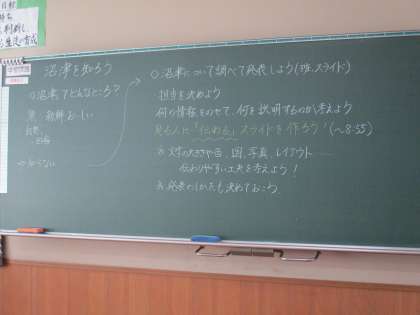 沼津を知ろう
○沼津ってどんなところ?
魚 新鮮 おいしい
自然
知らない
○沼津について調べて発表しよう(班、スライド)
担当を決めよう
何の情報をのせて、何を説明するのか考えよう
見る人に「伝わる」スライドを作ろう!(〜8:55)
※文字の大きさや色、図、写真、レイアウト……
伝わりやすい工夫を考えよう!
※発表のしかたも決めておこう